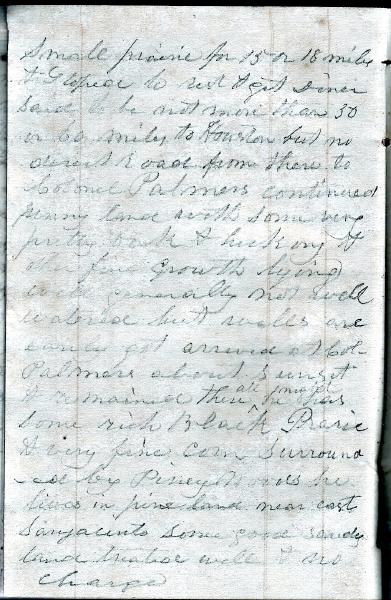 Small prairie for 15 or 18 miles
& Stoped to rest & get diner
Said to be not more than 30
or 60 miles to Houston but no
derect Road from there to
Colonel Palmers continued
pinny land with some very
pretty oak & hickory &
other fine growth lying
well generally not well
watered but wells are
easily got arrived at Col
Palmers about Sunset
& remained there all night he has
some rich Black Prarie
& very fine corn Surround
-ed by Piney Woods he
lives in pine land near east
Sanjacinto some good sandy
land treated well & no
charge